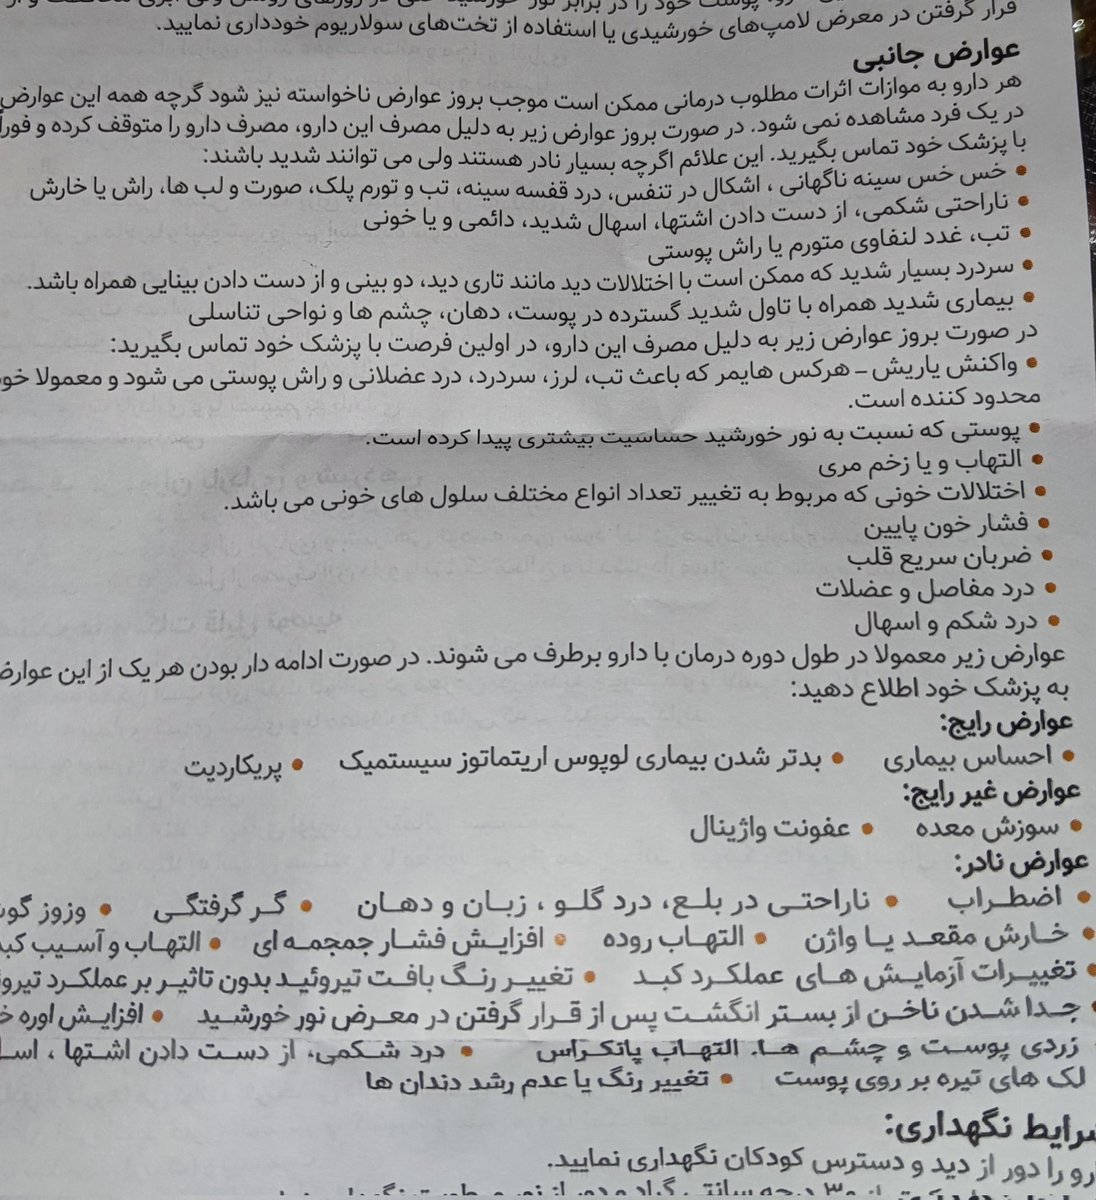 قرار گرفتن در معرض لامپ‌های خورشیدی یا استفاده از تخت‌های سولاریوم خودداری نمایید.
عوارض جانبی
هر دارو به موازات اثرات مطلوب درمانی ممکن است موجب بروز عوارض ناخواسته نیز شود گرچه همه این عوارض
در یک فرد مشاهده نمی شود. در صورت بروز عوارض زیر به دلیل مصرف این دارو، مصرف دارو را متوقف کرده و فورا
با پزشک خود تماس بگیرید. این علائم اگرچه بسیار نادر هستند ولی می توانند شدید باشند:
• خس خس سینه ناگهانی ، اشکال در تنفس، درد قفسه سینه، تب و تورم پلک، صورت و لب ها، راش یا خارش
• ناراحتی شکمی، از دست دادن اشتها، اسهال شدید، دائمی و یا خونی
• تب، غدد لنفاوی متورم یا راش پوستی
• سردرد بسیار شدید که ممکن است با اختلالات دید مانند تاری دید، دو بینی و از دست دادن بینایی همراه باشد.
• بیماری شدید همراه با تاول شدید گسترده در پوست، دهان، چشم ها و نواحی تناسلی
در صورت بروز عوارض زیر به دلیل مصرف این دارو، در اولین فرصت با پزشک خود تماس بگیرید:
• واکنش یاریش - هرکس هایمر که باعث تب، لرز، سردرد، درد عضلانی و راش پوستی می شود و معمولا خو
محدود کننده است.
• پوستی که نسبت به نور خورشید حساسیت بیشتری پیدا کرده است.
• التهاب و یا زخم مری
• اختلالات خونی که مربوط به تغییر تعداد انواع مختلف سلول های خونی می باشد.
• فشار خون پایین
• ضربان سریع قلب
• درد مفاصل و عضلات
• درد شکم و اسهال
عوارض زیر معمولا در طول دوره درمان با دارو برطرف می شوند. در صورت ادامه دار بودن هر یک از این عوارض
به پزشک خود اطلاع دهید:
عوارض رایج:
• احساس بیماری • بدتر شدن بیماری لوپوس اریتماتوز سیستمیک • پریکاردیت
عوارض غیر رایج:
• سوزش معده • عفونت واژینال
عوارض نادر:
• اضطراب • ناراحتی در بلع، درد گلو ، زبان و دهان • گر گرفتگی • وزوز گوش
• خارش مقعد یا واژن • التهاب روده • افزایش فشار جمجمه ای • التهاب و آسیب کبد
• تغییرات آزمایش های عملکرد کبد • تغییر رنگ بافت تیروئید بدون تاثیر بر عملکرد تیروئ
• جدا شدن ناخن از بستر انگشت پس از قرار گرفتن در معرض نور خورشید • افزایش اوره خ
زردی پوست و چشم ها. التهاب پانکراس • درد شکمی، از دست دادن اشتها ،
لک های تیره بر روی پوست • تغییر رنگ یا عدم رشد دندان ها
شرایط نگهداری:
رو را دور از دید و دسترس کودکان نگهداری نمایید.